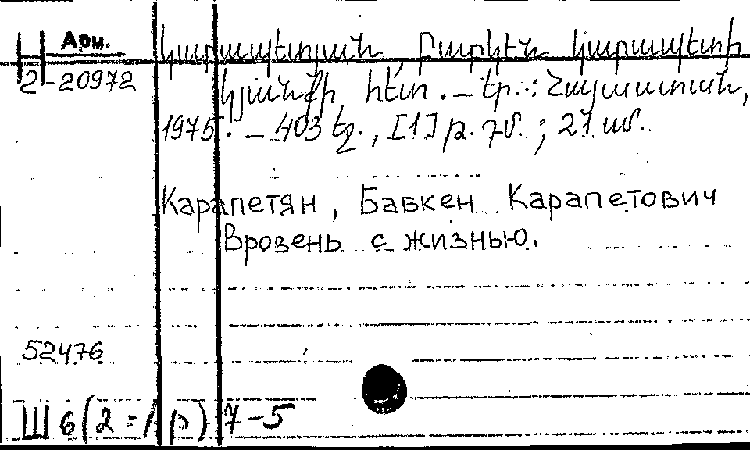 Арм.
Կարապետյան, Բաբկէն Կարապետի
2-20972
Կյանքի հետ. — Եր.: Հայաստան,
1975. — 403 էջ, [1] թ. դմ.; 21 սմ.
Карапетян, Бавкен Карапетович
Врозень с жизнью.
52476
Ш6(2=Ар)7-5